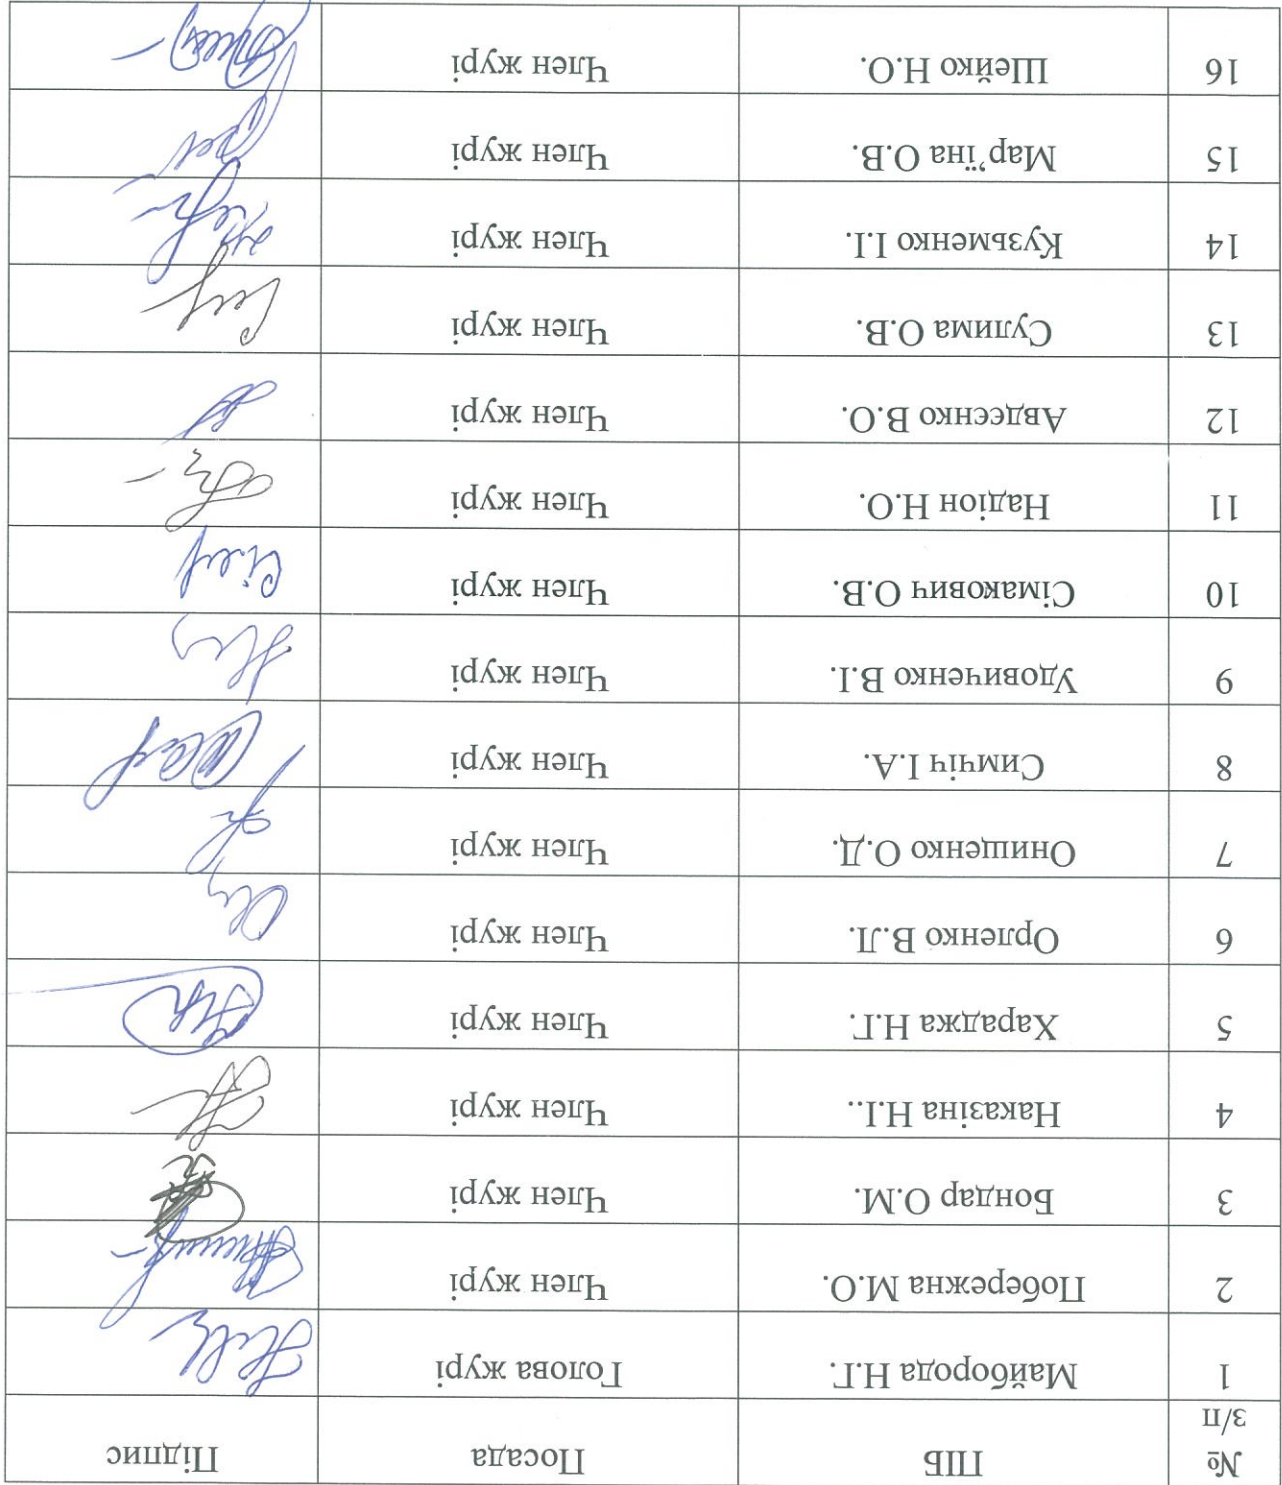 № з/п ПІБ Посада Підпис
1 Майборода Н.Г. Голова журі
2 Побережна М.О. Член журі
3 Бондар О.М. Член журі
4 Наказіна Н.І.. Член журі
5 Хараджа Н.Г. Член журі
6 Орленко В.Л. Член журі
7 Онищенко О.Д. Член журі
8 Симчіч І.А. Член журі
9 Удовиченко В.І. Член журі
10 Сімакович О.В. Член журі
11 Надіон Н.О. Член журі
12 Авдєєнко В.О. Член журі
13 Сулима О.В. Член журі
14 Кузьменко І.І. Член журі
15 Мар’їна О.В. Член журі
16 Шейко Н.О. Член журі